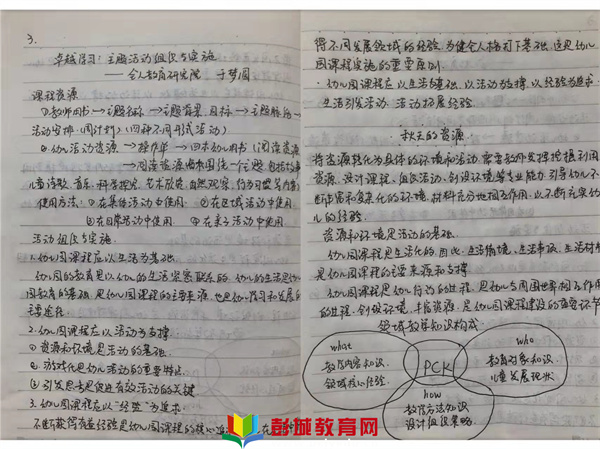 3.
卓越启习：主题活动组织与实施
——全人教育研究院 于梦園
课程资源
①教师用书→主题名称→主题背景、目标→主题脉络→
活动安排（周计划）（四种不同形式活动）
②幼儿活动资源→操作单→四本幼儿用书（阅读资源
→阅读资源绘本围绕一个主题，包括故事
儿童诗歌、音乐、科学探究、艺术欣赏、自然观察
使用方法：①在集体活动中使用 ②在区域活动中使用
③在日常活动中使用 ④在亲子活动中使用
活动组织与实施
1.幼儿园课程应以生活为基础
幼儿园的教育是以幼儿的生活紧密联系的，幼儿的生活是幼儿
园教育的基础，是幼儿园课程的主要来源，也是幼儿学习和发展的
主要途径
2.幼儿园课程应以活动为支撑
①资源和环境是活动的基础
②游戏化是幼儿活动的重要特点
③引发思考是促进有效活动的关键
3.幼儿园课程应以“经验”为追求
不断获得有益经验是幼儿园课程的核心追求
得不同发展领域的经验，为健全人格打下基础，这是幼儿
园课程实施的重要原则
·幼儿园课程应以生活为基础，以活动为支撑，以经验为追求
生活引发活动，活动拓展经验
·秋天的资源·
将资源转化为具体的环境和活动，需要教师发挥挖掘利用
资源、设计课程、组织活动、创设环境等专业能力，引导幼儿不
断与需求复杂化的环境、材料充分地相互作用，以不断充实幼儿
的经验
资源和环境是活动的基础
幼儿园课程是生活化的，因此，生活情境、生活事项、生活材料
是幼儿园课程的主要来源和支撑
幼儿园课程是幼儿行动的进程，是幼儿与周围世界相互作用
的进程，创设环境、丰富资源，是幼儿园课程建设的重要环节
领域教学知识构成
what
教育内容知识
领域核心经验
PCK
who
教育对象知识
儿童发展现状
how
教育方法知识
设计组织策略
彭城教育网